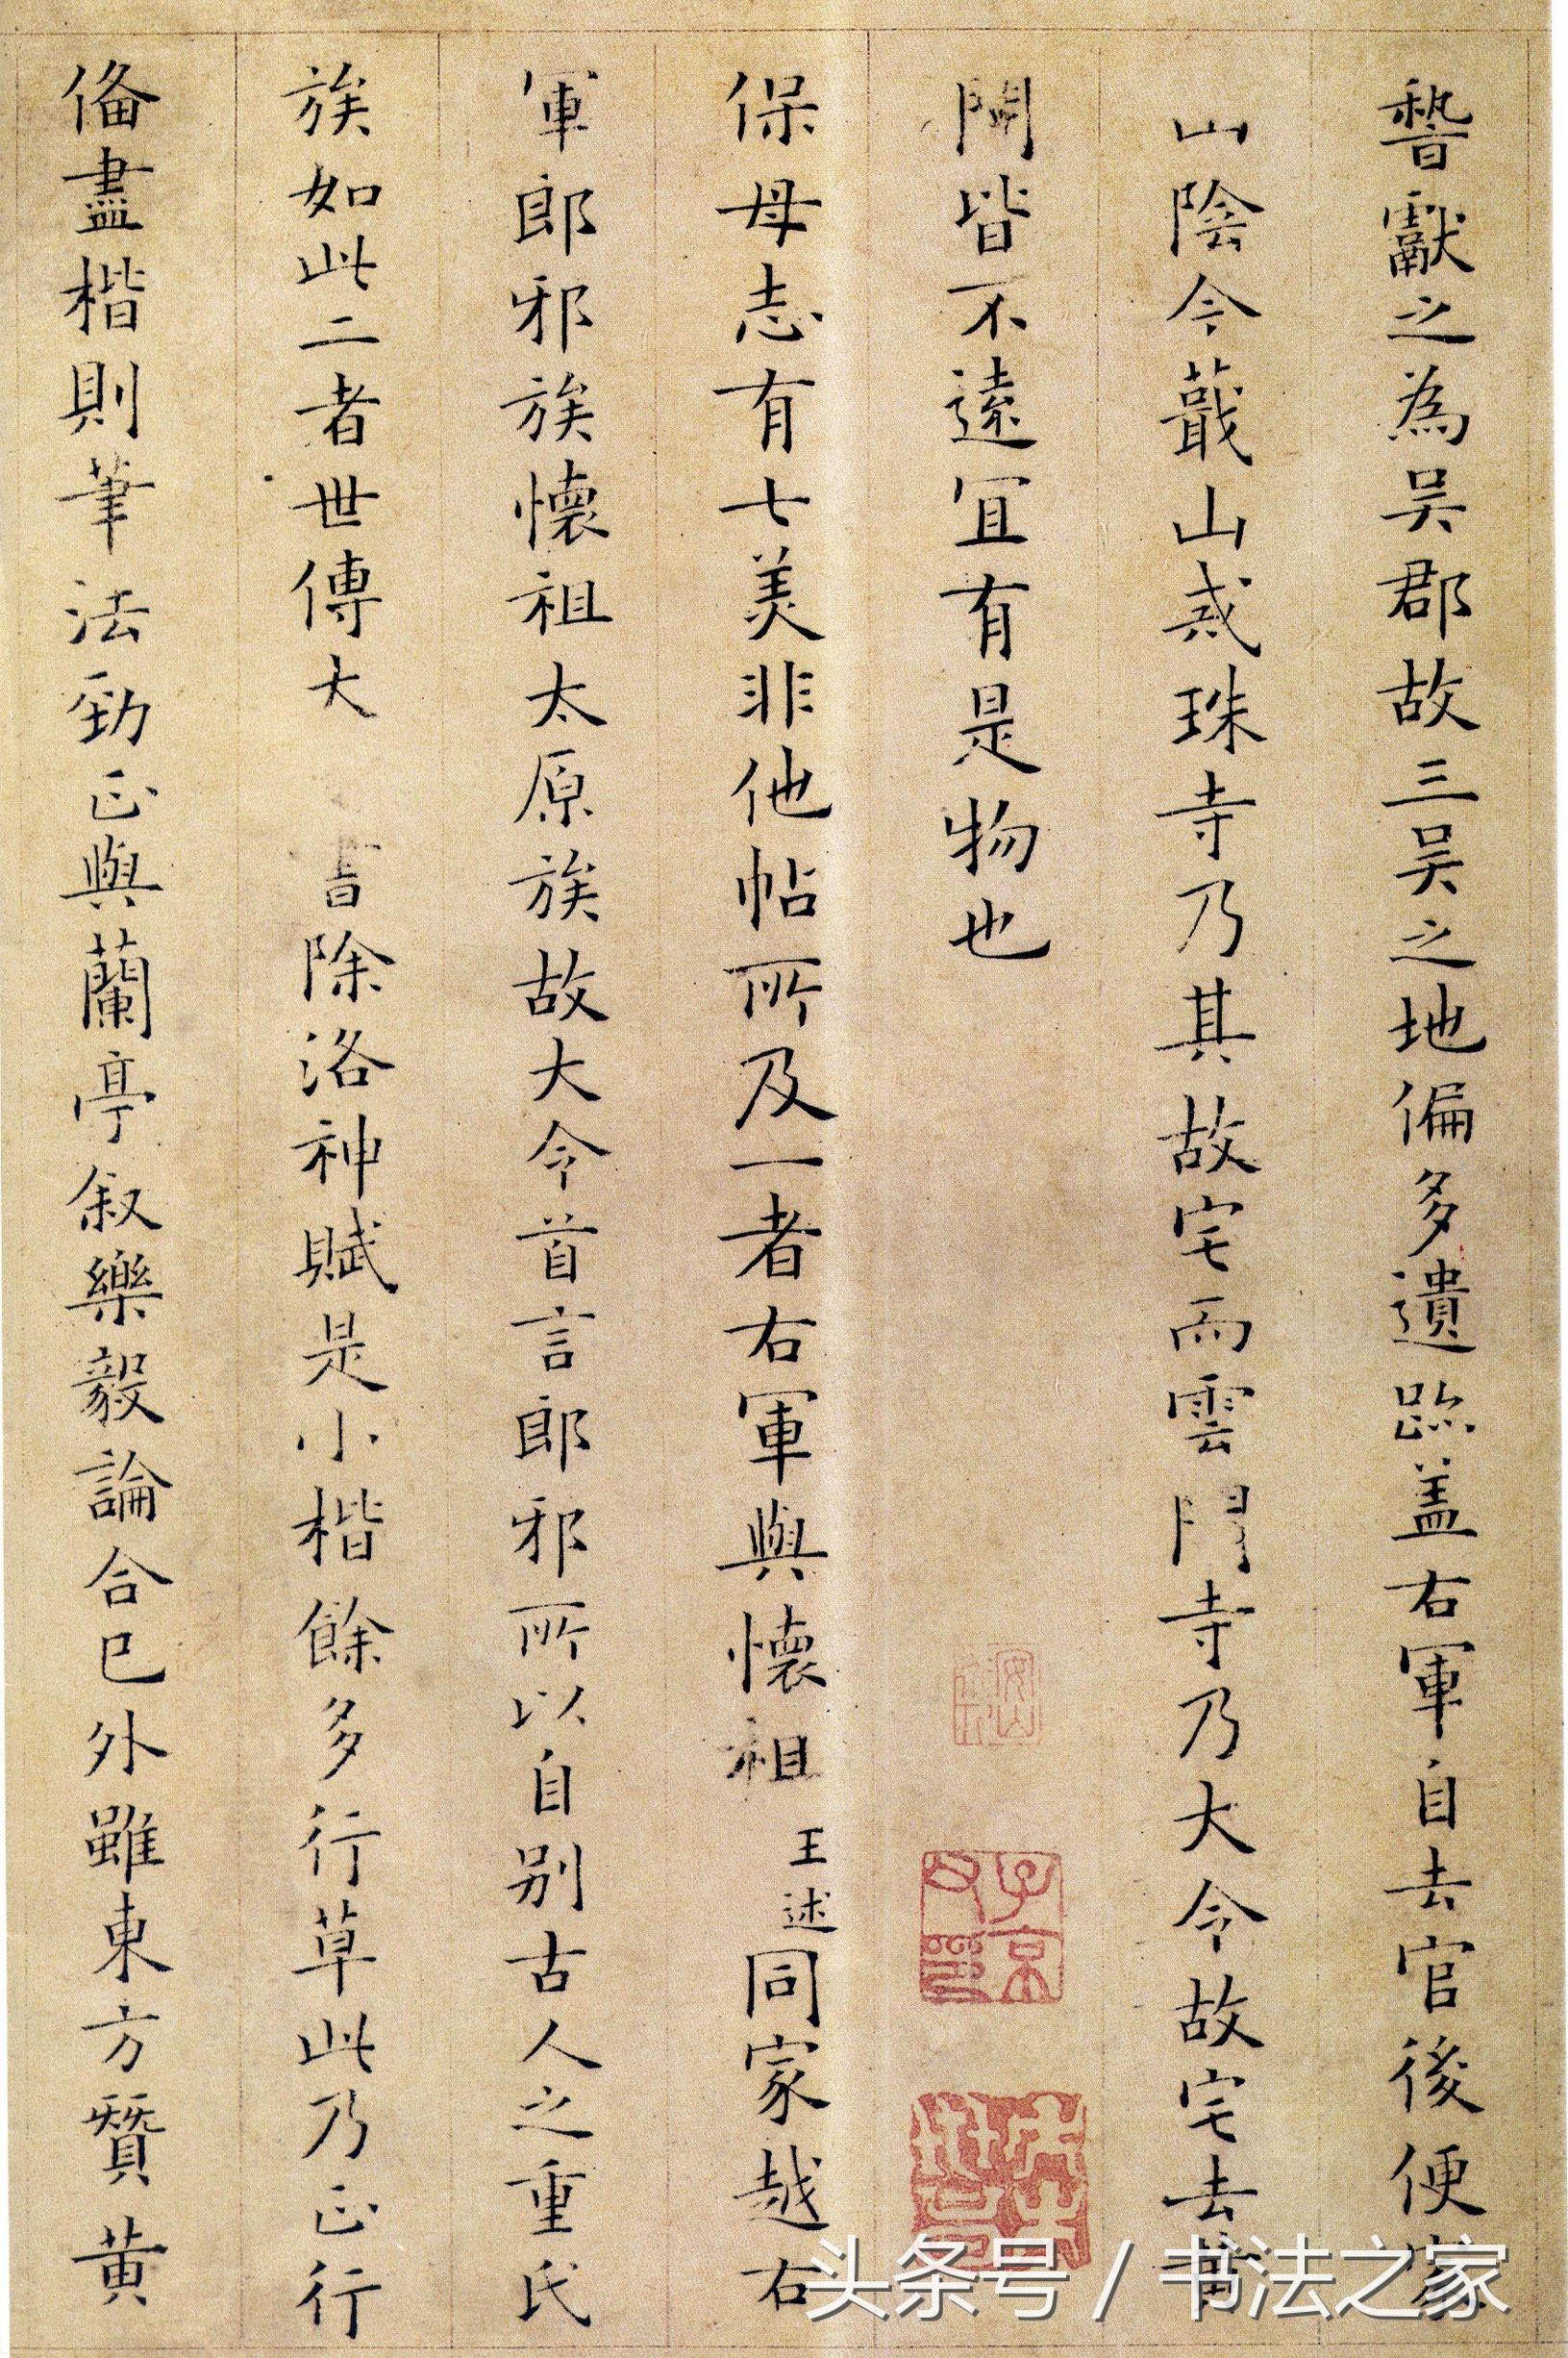 獻之為吳郡故三吳之地偏多遺跡盖右軍自去官後便家
山陰今蕺山戒珠寺乃其故宅而雲門寺乃大令故宅去黄
閍皆不遠宜有是物也
保母志有七美非他帖所及一者右軍與懷祖王述同家越右
軍郎邪族懷祖太原族故大令首言郎邪所以自别古人之重氏
族如此二者世傳大書除洛神賦是小楷餘多行草此乃正行
俻盡楷則筆法勁正與蘭亭叙樂毅論合已外雖東方贊黄
头条号 / 书法之家